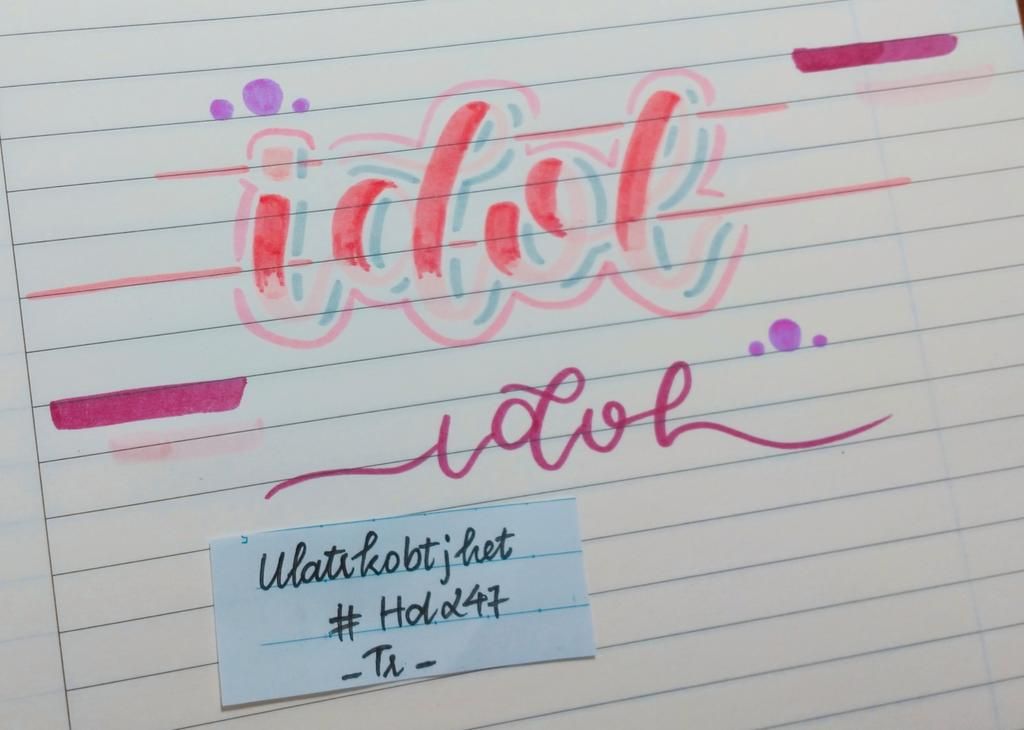 idol
idol
Ulatikobtjhet
# Hold247
- Tr -